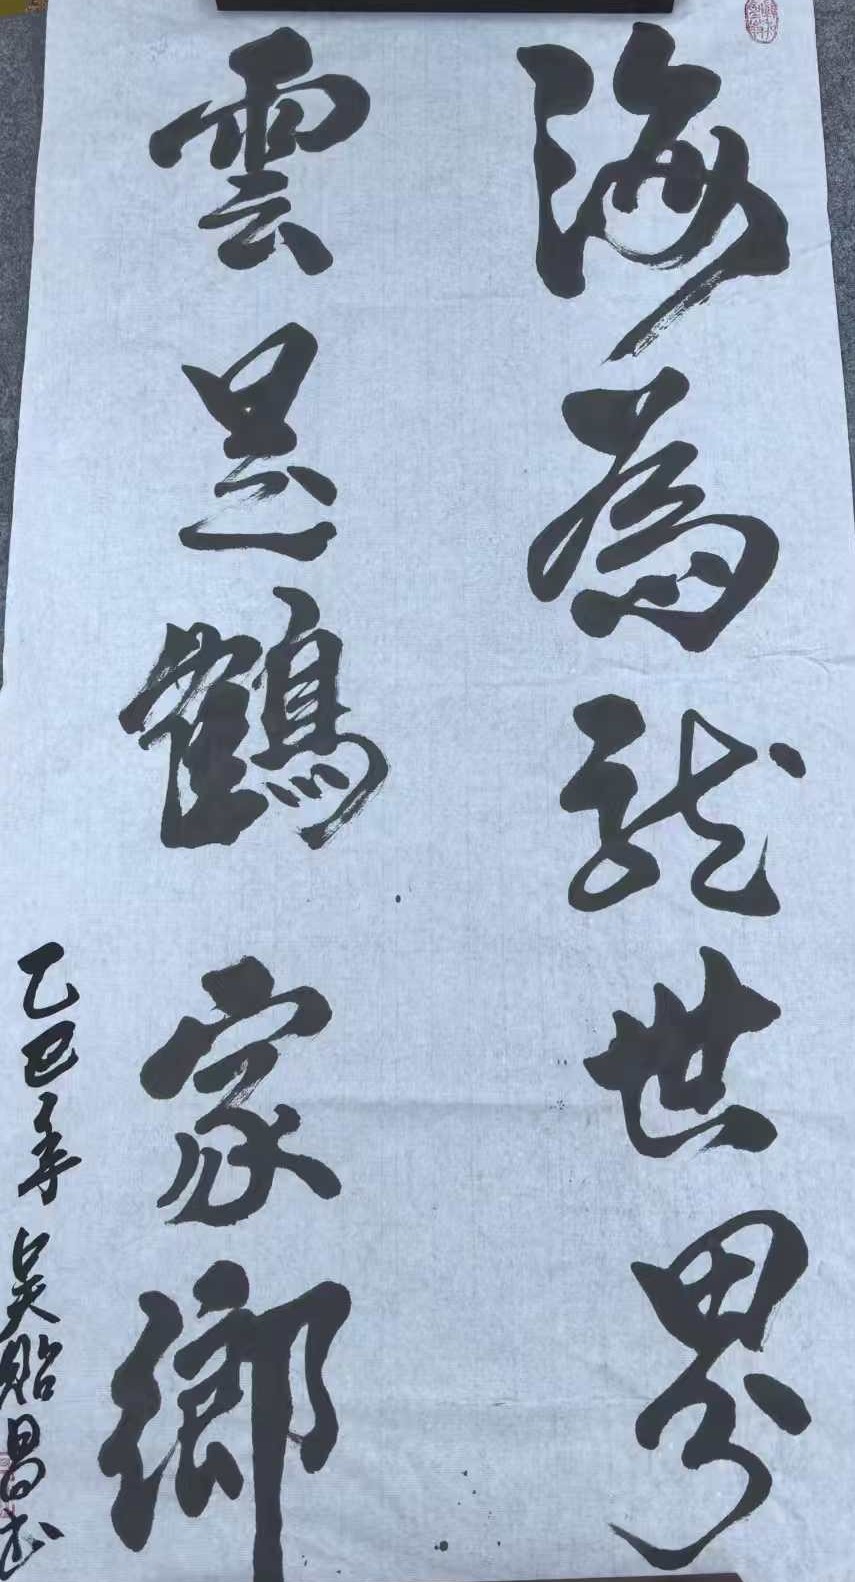 海為龍世界
雲是鶴家鄉
乙巳年吴貽昌书